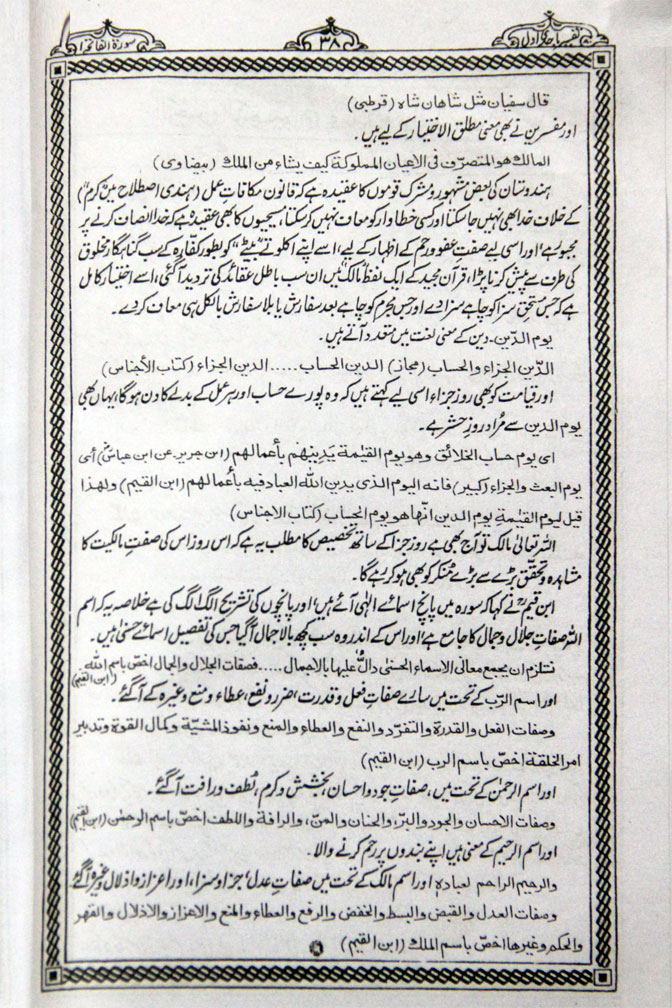 تفسیر ماجدی اول
۳۸
سورۃ الفاتحہ ۱
قال سفیان مثل شاھان شاہ (قرطبی)
اور مفسرین نے بھی معنی مطلق الاختیار کے لیے ہیں۔
المالك ھو المتصرّف فی الاعیان المملوکة کیف یشاء من الملك (بیضاوی)
ہندوستان کی بعض مشہور و مشرک قوموں کا عقیدہ ہے کہ قانون مکافات عمل (ہندی اصطلاح میں "کرم")
کے خلاف خدا بھی نہیں جا سکتا اور کسی خطاوار کو معاف نہیں کر سکتا، مسیحیوں کا بھی عقیدہ ہے کہ خدا انصاف کرنے پر
مجبور ہے، اور اسی لیے صفتِ عفو و رحم کے اظہار کے لیے، اسے اپنے اکلوتے "بیٹے" کو بطور کفارہ کے سب گناہگار مخلوق
کی طرف سے پیش کرنا پڑا، قرآن مجید کے ایک لفظ مالك میں ان سب باطل عقائد کی تردید آگئی، اسے اختیار کامل
ہے کہ جس مستحق سزا کو چاہے سزا دے اور جس مجرم کو چاہے بعد سفارش یا بلا سفارش بالکل ہی معاف کر دے۔
یوم الدّین۔ دین کے معنی لغت میں متعدد آتے ہیں۔
الدّین الجزاء والحساب (مجاز) الدین الحساب.....الدین الجزاء (کتاب الأجناس)
اور قیامت کو بھی روز جزاء اسی لیے کہتے ہیں کہ وہ پورے حساب اور ہر عمل کے بدلے کا دن ہوگا، یہاں بھی
یوم الدین سے مُراد روزِ حشر ہے۔
ای یوم حساب الخلائق وھو یوم القیٰمة یدینھم بأعمالھم (ابن جریر عن ابن عباسؓ) أی
یوم البعث والجزاء (کبیر) فانه الیوم الذی یدین اللہ العباد فیه بأعمالھم (ابن القیم) ولھذا
قیل لیوم القیٰمة یوم الدین انّھا ھو یوم الحساب (کتاب الاجناس)
اللہ تعالیٰ مالك تو آج بھی ہے روز جزا کے ساتھ تخصیص کا مطلب یہ ہے کہ اس روز اس کی صفتِ مالکیت کا
مشاہدہ و تحقق بڑے سے بڑے منکر کو بھی ہو کر رہے گا۔
ابن قیمؒ نے کہا کہ سورہ میں پانچ اسمائے الٰہی آئے ہیں، اور پانچوں کی تشریح الگ الگ کی ہے خلاصہ یہ کہ اسم
اللہ صفاتِ جلال و جمال کا جامع ہے، اور اس کے اندر وہ سب کچھ بالاجمال آگیا جس کی تفصیل اسمائے حسنیٰ ہیں۔
تستلزم ان یجمع معانی الاسماء الحسنیٰ دالٌّ علیھا بالاجمال.....فصفات الجلال والجمال اخصّ باسم اللہ (ابن القیم)
اور اسم الرّب کے تحت میں سارے صفاتِ فعل و قدرت، ضرر و نفع، عطاء و منع وغیرہ کے آگئے۔
وصفات الفعل والقدرة والتفرّد والنفع والعطاء والمنع ونفوذ المشیّة وکمال القوة وتدبیر
امر الخلقة اخصّ باسم الرب (ابن القیم)
اور اسم الرحمٰن کے تحت میں، صفاتِ جود و احسان، بخشش و کرم، لُطف و رافت آگئے۔
وصفات الاحسان والجود والبرّ، والحنان والمنّ، والرافة واللطف اخصّ باسم الرحمٰن (ابن القیم)
اور اسم الرحیم کے معنی ہیں اپنے بندوں پر رحم کرنے والا۔
والرحیم الراحم لعبادہ اور اسم مالك کے تحت میں صفاتِ عدل، جزا و سزا، اور اعزاز و اذلال وغیرہ آگئے
وصفات العدل والقبض والبسط والخفض والرفع والعطاء والمنع والاعزاز والاذلال والقھر
والحکم وغیرھا اخصّ باسم الملك (ابن القیم)